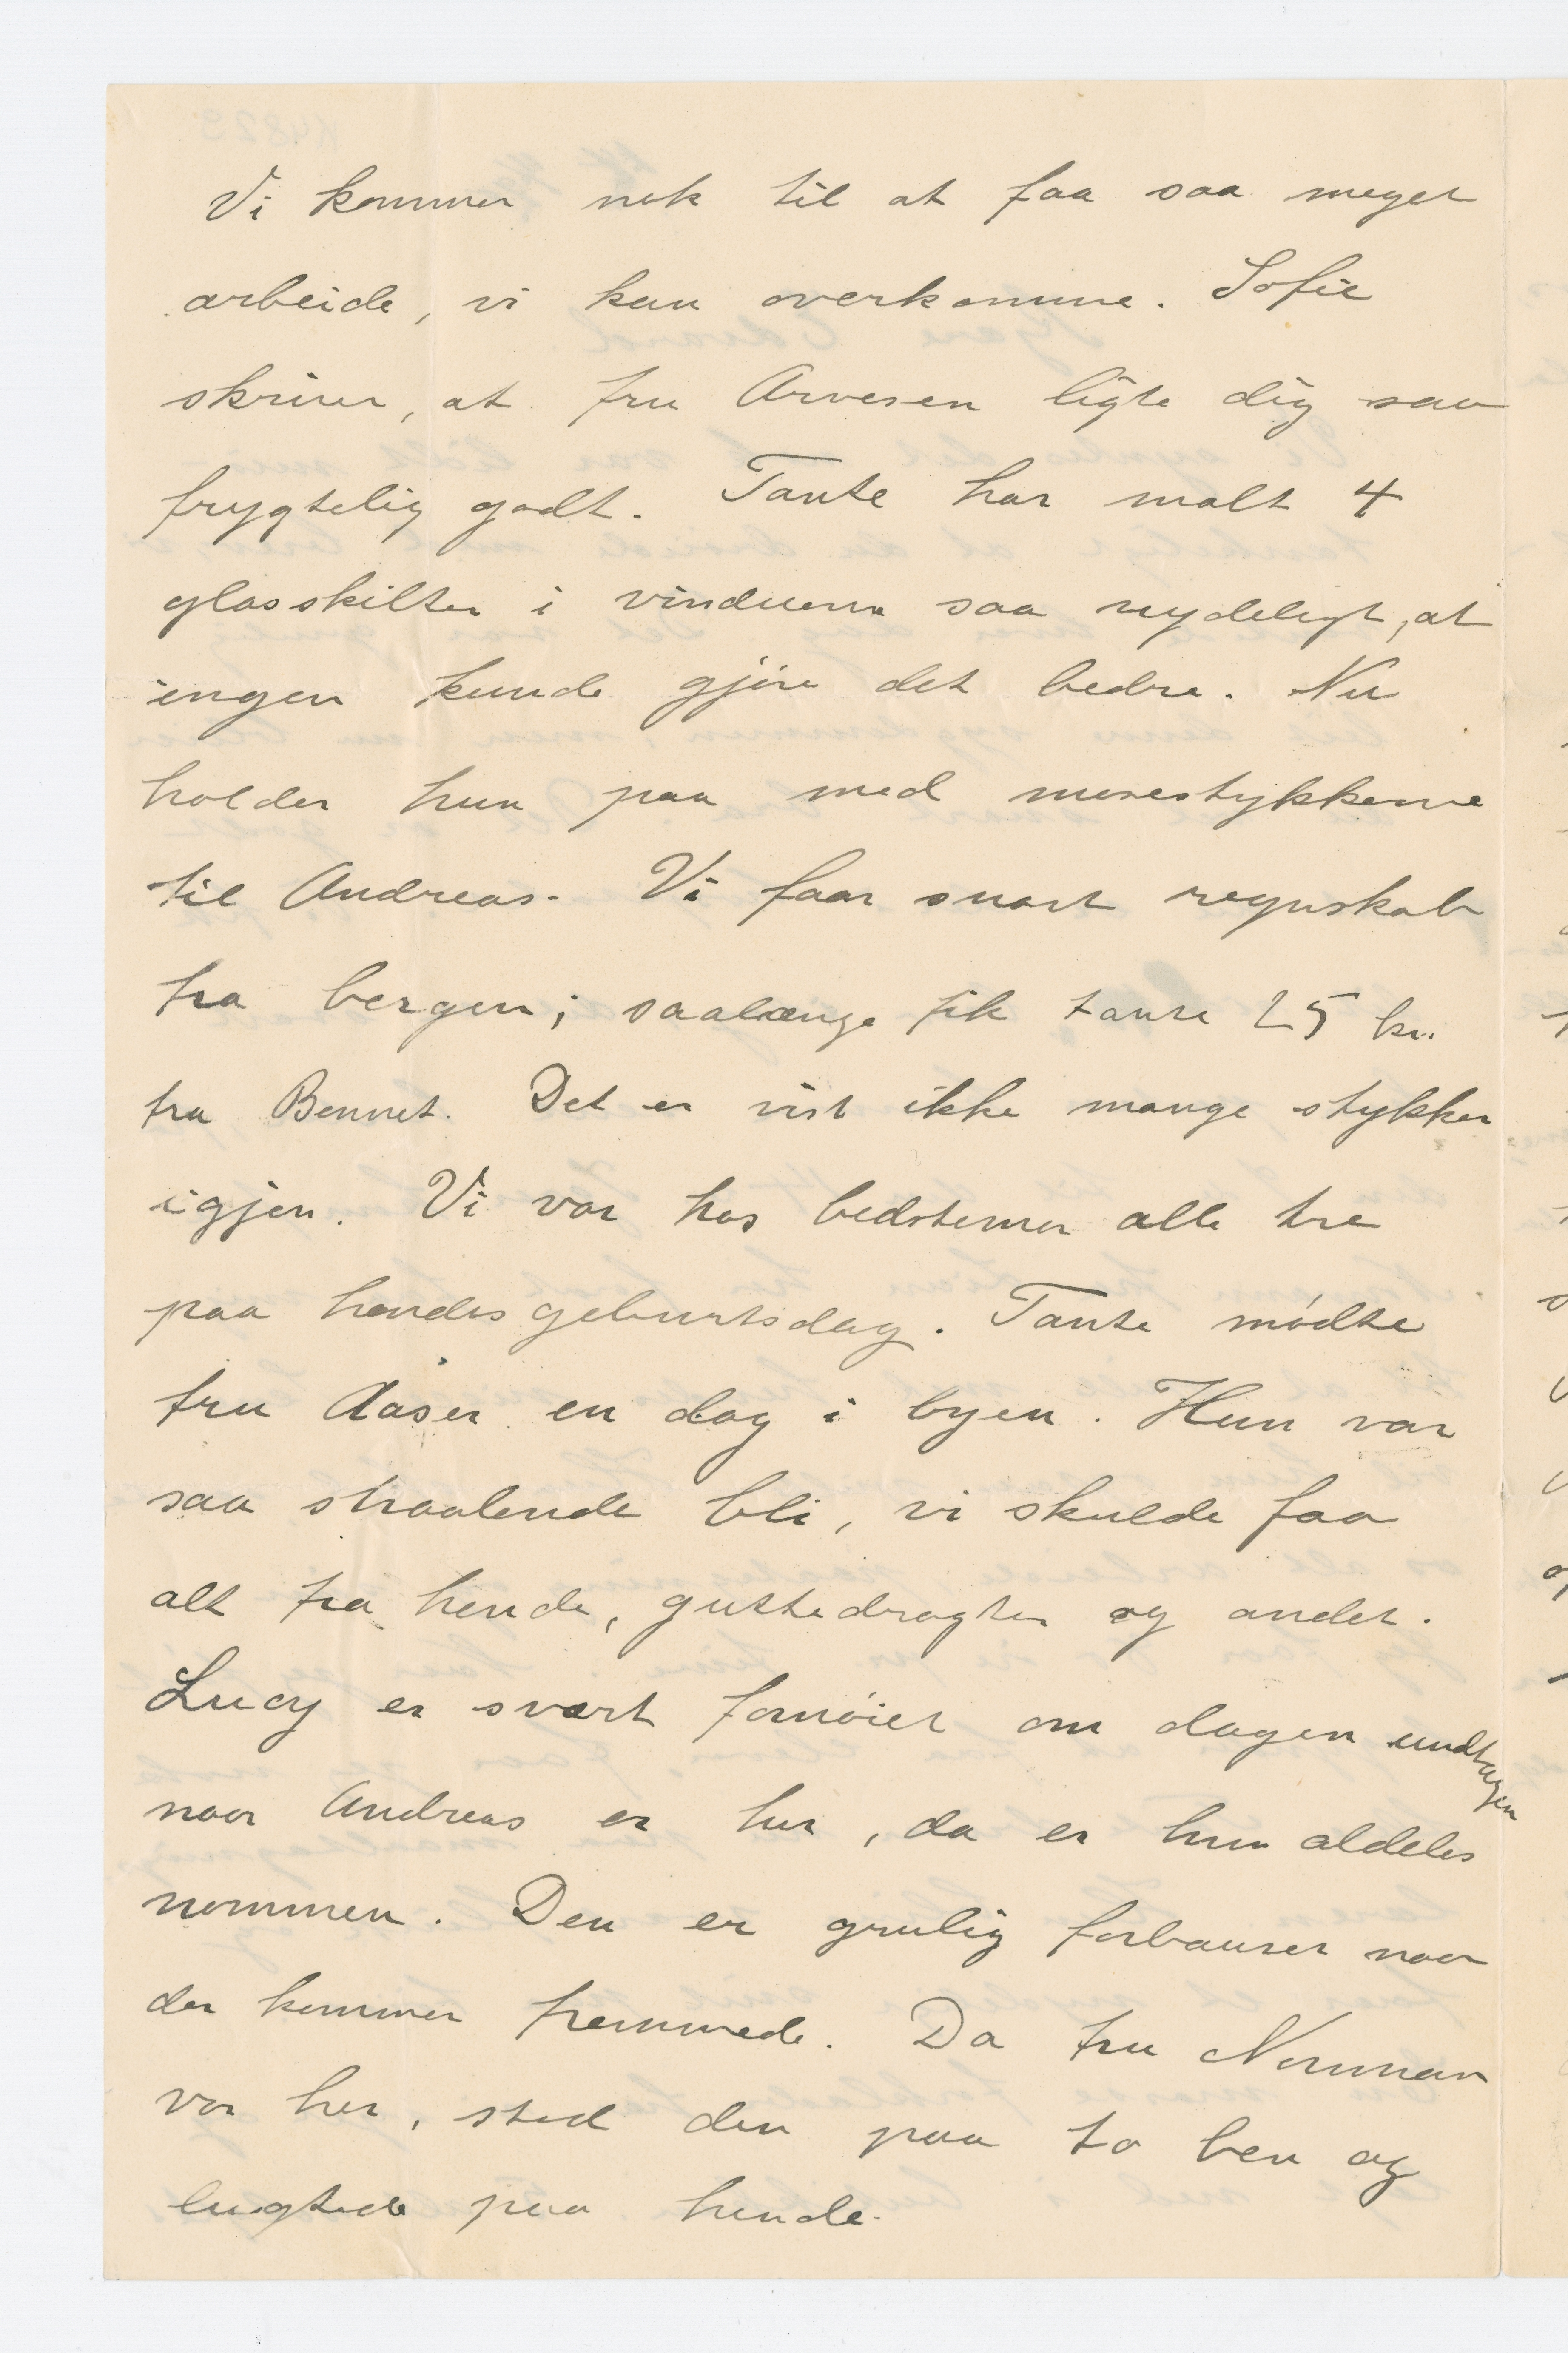 Vi kommer nok til at faa saa meget
arbeide, vi kan overkomme. Sofie
skriver, at fru Arvesen ligte dig saa
frygtelig godt. Tante har malt 4
glasskilter i vinduerne saa nydeligt, at
ingen kunde gjøre det bedre. Nu
holder hun paa med mosestykkerne
til Andreas. Vi faar snart regnskab
fra bergen; saalænge fik tante 25 kr.
fra Bennet. Det er vist ikke mange stykker
igjen. Vi var hos bedstemor alle tre
paa hendes geburtsdag. Tante mødte
fru Aaser en dag i byen. Hun var
saa straalende bli, vi skulde faa
alt fra hende, guttedragter og andet.
Lucy er svært fornøiet om dagen undtagen
naar Andreas er her, da er hun aldeles
nommen. Den er grulig forbauset naar
der kommer fremmede. Da fru Norman
var her, stod den paa to ben og
lugtede paa hende.